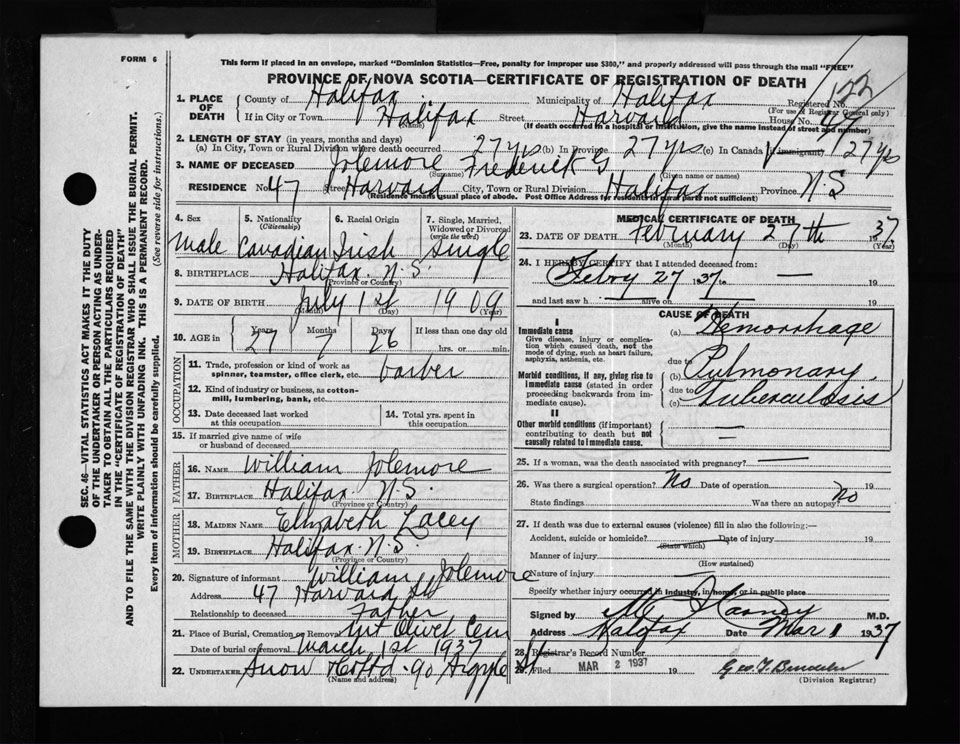 FORM 6
This form if placed in an envelope, marked "Dominion Statistics—Free, penalty for improper use $300," and properly addressed will pass through the mail "FREE"
PROVINCE OF NOVA SCOTIA—CERTIFICATE OF REGISTRATION OF DEATH
SEC. 46—VITAL STATISTICS ACT MAKES IT THE DUTY
OF THE UNDERTAKER OR PERSON ACTING AS UNDER-
TAKER TO OBTAIN ALL THE PARTICULARS REQUIRED
IN THE "CERTIFICATE OF REGISTRATION OF DEATH"
AND TO FILE THE SAME WITH THE DIVISION REGISTRAR WHO SHALL ISSUE THE BURIAL PERMIT.
WRITE PLAINLY WITH UNFADING INK. THIS IS A PERMANENT RECORD.
Every item of Information should be carefully supplied. (See reverse side for instructions.)
1. PLACE OF DEATH
County of Halifax Municipality of Halifax Registered No. 122
(For use of Registrar General only)
If in City or Town Halifax Street Harvard House No. 47
(Name) (If death occurred in a hospital or institution, give the name instead of street and number)
2. LENGTH OF STAY (in years, months and days)
(a) In City, Town or Rural Division where death occurred 27 yrs (b) In Province 27 yrs (c) In Canada (if immigrant) 27 yrs
3. NAME OF DECEASED Jolemore Frederick G
(Surname) (Given name or names)
RESIDENCE No. 47 Street Harvard City, Town or Rural Division Halifax Province N.S
(Residence means usual place of abode. Post Office Address for residents in rural parts not sufficient)
4. Sex
male
5. Nationality (Citizenship)
Canadian
6. Racial Origin
Irish
7. Single, Married, Widowed or Divorced (write the word)
Single
8. BIRTHPLACE Halifax. N.S.
(Province or Country)
9. DATE OF BIRTH July 1st 1909
(Month) (Day) (Year)
10. AGE in Years Months Days If less than one day old
27 7 26 hrs. or min.
OCCUPATION
11. Trade, profession or kind of work as spinner, teamster, office clerk, etc. barber
12. Kind of industry or business, as cotton-mill, lumbering, bank, etc.
13. Date deceased last worked at this occupation
14. Total yrs. spent in this occupation
15. If married give name of wife or husband of deceased
FATHER
16. NAME William Jolemore
17. BIRTHPLACE Halifax. N.S.
(Province or Country)
MOTHER
18. MAIDEN NAME Elizabeth Lacey
19. BIRTHPLACE Halifax. N.S.
(Province or Country)
20. Signature of informant William Jolemore
Address 47 Harvard St
Relationship to deceased Father
21. Place of Burial, Cremation or Removal Mt Olivet Cem
Date of burial or removal March 1st 1937
22. UNDERTAKER Snow & Co Ltd - 90 Argyle St
(Name and address)
MEDICAL CERTIFICATE OF DEATH
23. DATE OF DEATH February 27th 37
(Month) (Day) (Year)
24. I HEREBY CERTIFY that I attended deceased from:
Febry 27 37 — 19
and last saw h alive on 19
CAUSE OF DEATH
I
Immediate cause
Give disease, injury or complication which caused death, not the mode of dying, such as heart failure, asphyxia, asthenia, etc.
(a) Hemorrhage
due to
Morbid conditions, if any, giving rise to immediate cause (stated in order proceeding backwards from immediate cause).
(b) Pulmonary
due to
(c) Tuberculosis
II
Other morbid conditions (if important) contributing to death but not causally related to immediate cause.
25. If a woman, was the death associated with pregnancy? —
26. Was there a surgical operation? No Date of operation 19
State findings Was there an autopsy? No
27. If death was due to external causes (violence) fill in also the following:—
Accident, suicide or homicide? Date of injury 19
(State which)
Manner of injury
(How sustained)
Nature of injury
Specify whether injury occurred in Industry, in home, or in public place
Signed by M.D.
Address Halifax Date Mar 1 1937
28. Registrar's Record Number
29. Filed MAR 2 1937 19
(Division Registrar)